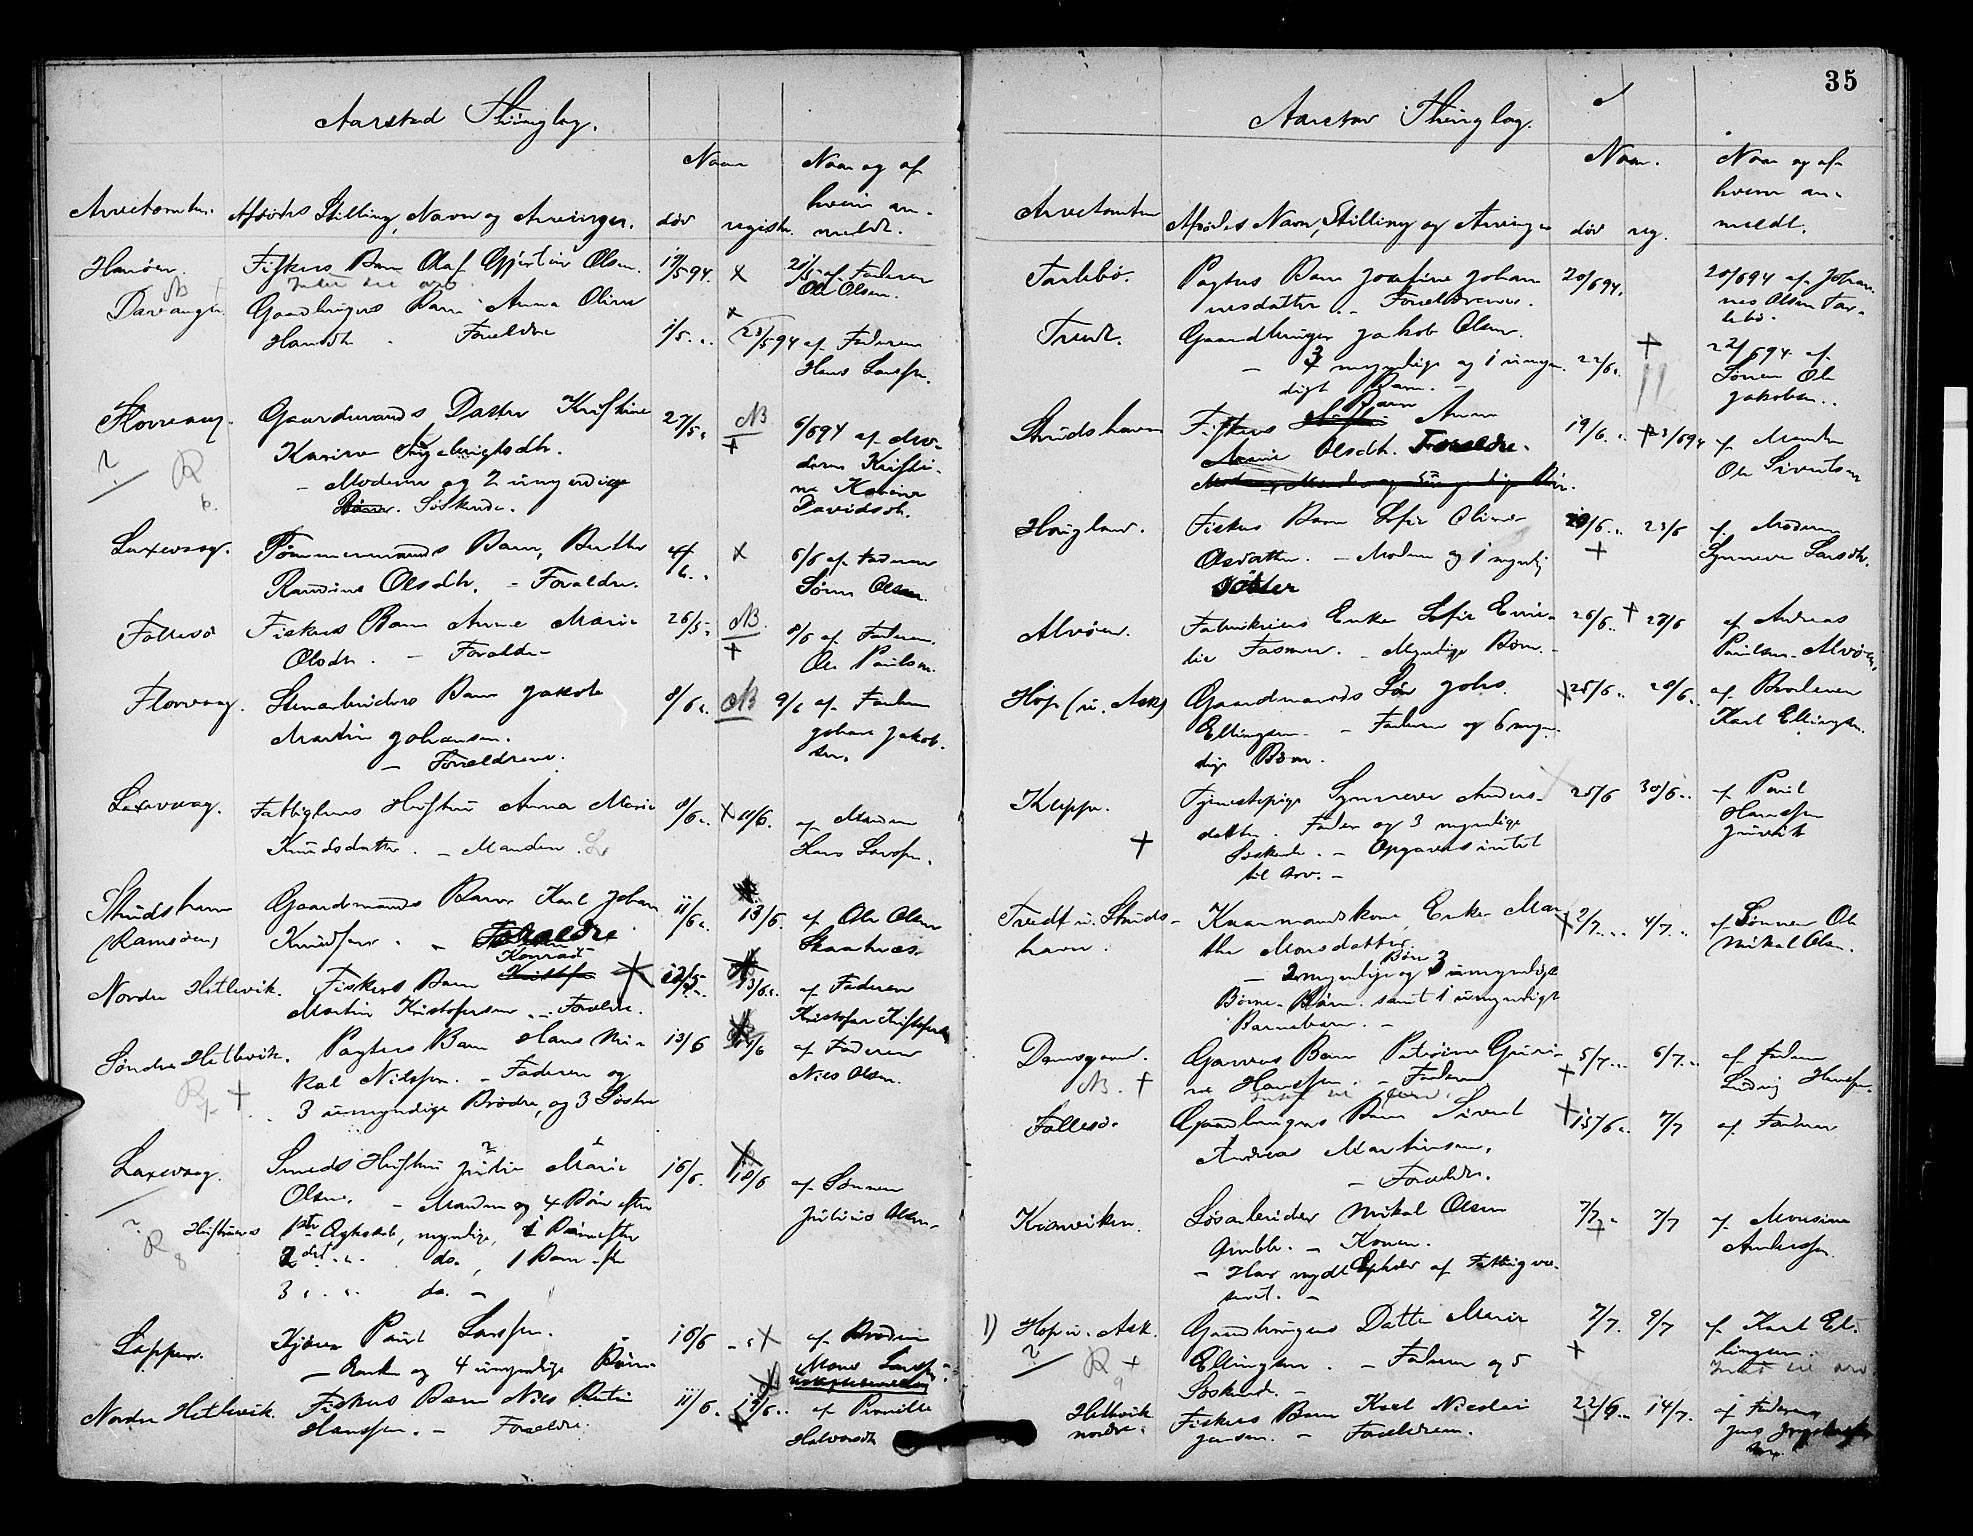 Aarstad Thinglag.
Naar
Naar og af
hvem an-
meldt.
Arvetomten.
Afdødes Stilling, Navn og Arvinger.
død
registr.
Hanøen.
Fiskers Barn Olaf Gjertin Olsen.
19/5 94.
21/5 af Faderen
Intet til arv
Ole Olsen.
Davanger.
NB
Gaardbrugers Barn Anna Oline
Hansdtr. Forældre
1/5 "
23/5 94 af Faderen
Hans Larssen.
Florvaag.
Gaardmands Datter Kristine
27/5 "
NB
6/6 94 af Mo-
Karine Ingebrigtsdtr.
deren Kristi-
– Moderen og 2 umyndige
ne Karine
Søskende.
Davidsdtr.
?
R
6.
Laxevaag.
Tømmermands Barn, Berthe
4/6 "
6/6 af Faderen
Randine Olsdtr. – Forældre.
Søren Olsen.
Follesø
Fiskers Barn Anne Marie
26/5 "
NB.
8/6 af Faderen
Olsdtr. – Forældre –
Ole Paulsen.
Florvaag.
Stenarbeiders Barn Jakob
8/6 "
NB
9/6 af Faderen
Martin Johansen.
Johan Jakob-
– Forældrene.
sen.
Laxevaag.
Fattiglems Hustru Anna Marie
9/6 "
11/6.
af Manden
Knudsdatter. – Manden.
Hans Larssen.
Strudshavn
Gaardmands Barn Karl Johan
11/6 "
13/6.
af Ole Olsen
(Ramsøen)
Knudsen. – Forældre.
Nordre Hetlevik.
Fiskers Barn Konrad
12/5
13/6 "
af Faderen
Martin Kristofersen. – Forældre.
Kristofer Kristofersen
Søndre Hetlevik.
Pagters Barn Hans Mi-
13/6
af Faderen
kal Nilssen. – Faderen og
Nils Olsen.
3 umyndige Brødre, og 3 Søstre
Laxevaag.
Smeds Hustru Julie Marie
16/6.
18/6
af Sønnen
Olsen. – Manden og 4 Børn efter
Julius Olsen.
?
R
8
Hustruens 1ste Ægteskab, myndige, 1 Barn efter
2det " do., 1 Barn efter
3 " " do. –
Loppen.
Kjøren Paul Larssen.
16/6
af Broderen
– Enke og 4 umyndige Børn
Mons Larssen
Nordre Hetlevik.
Fiskers Barn Nils Martin
11/6.
af Pernille
Hanssen. – Forældre.
Halvorsdtr.
35
Aarstad Thinglag.
Naar.
Naar og af
hvem an-
meldt.
Arvetomten
Afdødes Navn, Stilling og Arvinger
død
reg.
Tarlebø.
Pagters Barn Josefine Johan
20/6 94.
20/6 94 af Johan-
nesdatter. – Forældrene.
nes Olsen Tar-
lebø.
Tredt.
Gaardbruger Jakob Olsen.
– 3 myndige og 1 umyn-
22/6 "
22/6 94 af
digt Barn. –
Sønnen Ole
Jakobsen.
Strudshavn
Fiskers Barn Anna
19/6 "
23/6 94
af Manden
Olsdtr. Forældre.
Ole Sivertsen
Haugland.
Fiskers Barn Sofie Oline
20/6 "
23/6
af Moderen
Olsdatter. – Moderen og 1 myndig
Synneve Larsdtr.
Søster
Alvøen.
Fabrikeiers Enke Sofie Emi-
26/6 "
28/6
af Andreas
lie Fasmer. – Myndige Børn. –
Paulsen Alvøen,
Hop (u. Ask)
Gaardmands Søn Johs.
25/6 "
28/6.
af Broderen
Ellingsen. – Faderen og 6 myn-
Karl Ellingsen.
dige Børn.
Kleppe.
Tjenestepige Synneve Anders-
25/6
30/6 "
af Paul
datter. Fader og 3 myndige
Hanssen
Søskende. – Opgaves intet
Juvik
til Arv. –
Tredt u. Struds-
Kaarmandskone, Enke Mar-
2/7 "
4/7 "
af Sønnen Ole
havn.
the Monsdatter.
Mikal Olsen.
– 2 myndige og 3 umyndige
Børne-Børn. samt 1 umyndigt
Barnebarn. –
Damsgaard.
Garvers Barn Petrine Guri-
5/7 "
6/7 "
af Faderen
NB.
ne Hanssen. – Faderen
Ludvig Hanssen.
Follesø.
Gaardbrugers Barn Sivert
15/6 "
7/7
af Faderen
Andreas Martinsen.
– Forældre.
Kraaviken.
Løsarbeider Mikal Olsen
7/7 "
7/7
af Monsine
Grubb. – Konen.
Anderssen.
– Har nydt Ophold af Fattigvæ-
senet. –
1) Hop u. Ask.
Gaardbrugers Datter Marie
7/7.
9/7
af Karl El-
?
R
9
Ellingsen. – Faderen og 5
lingsen.
Intet til arv
Søskende. –
Hetlevik
Fiskers Barn Karl Nicolai
22/6 "
14/7.
af Faderen
nordre.
Jensen. – Forældrene.
Jens